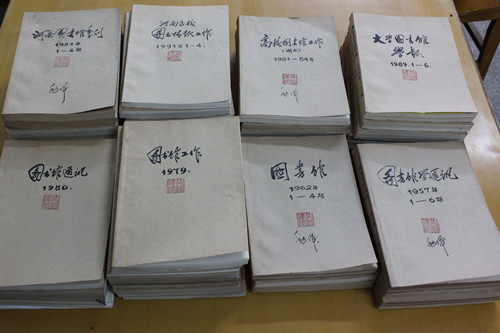 河南图书馆季刊
1982年
1—4期
河南高校
图书馆工作
1991年1-4.
高校图书馆工作
1981—84年
大学图书馆
学报
1989.1-6.
图书馆通讯
1980.
图书馆工作
1979.
图书馆
1962年
1—4期
图书馆学通讯
1957年
1—6期